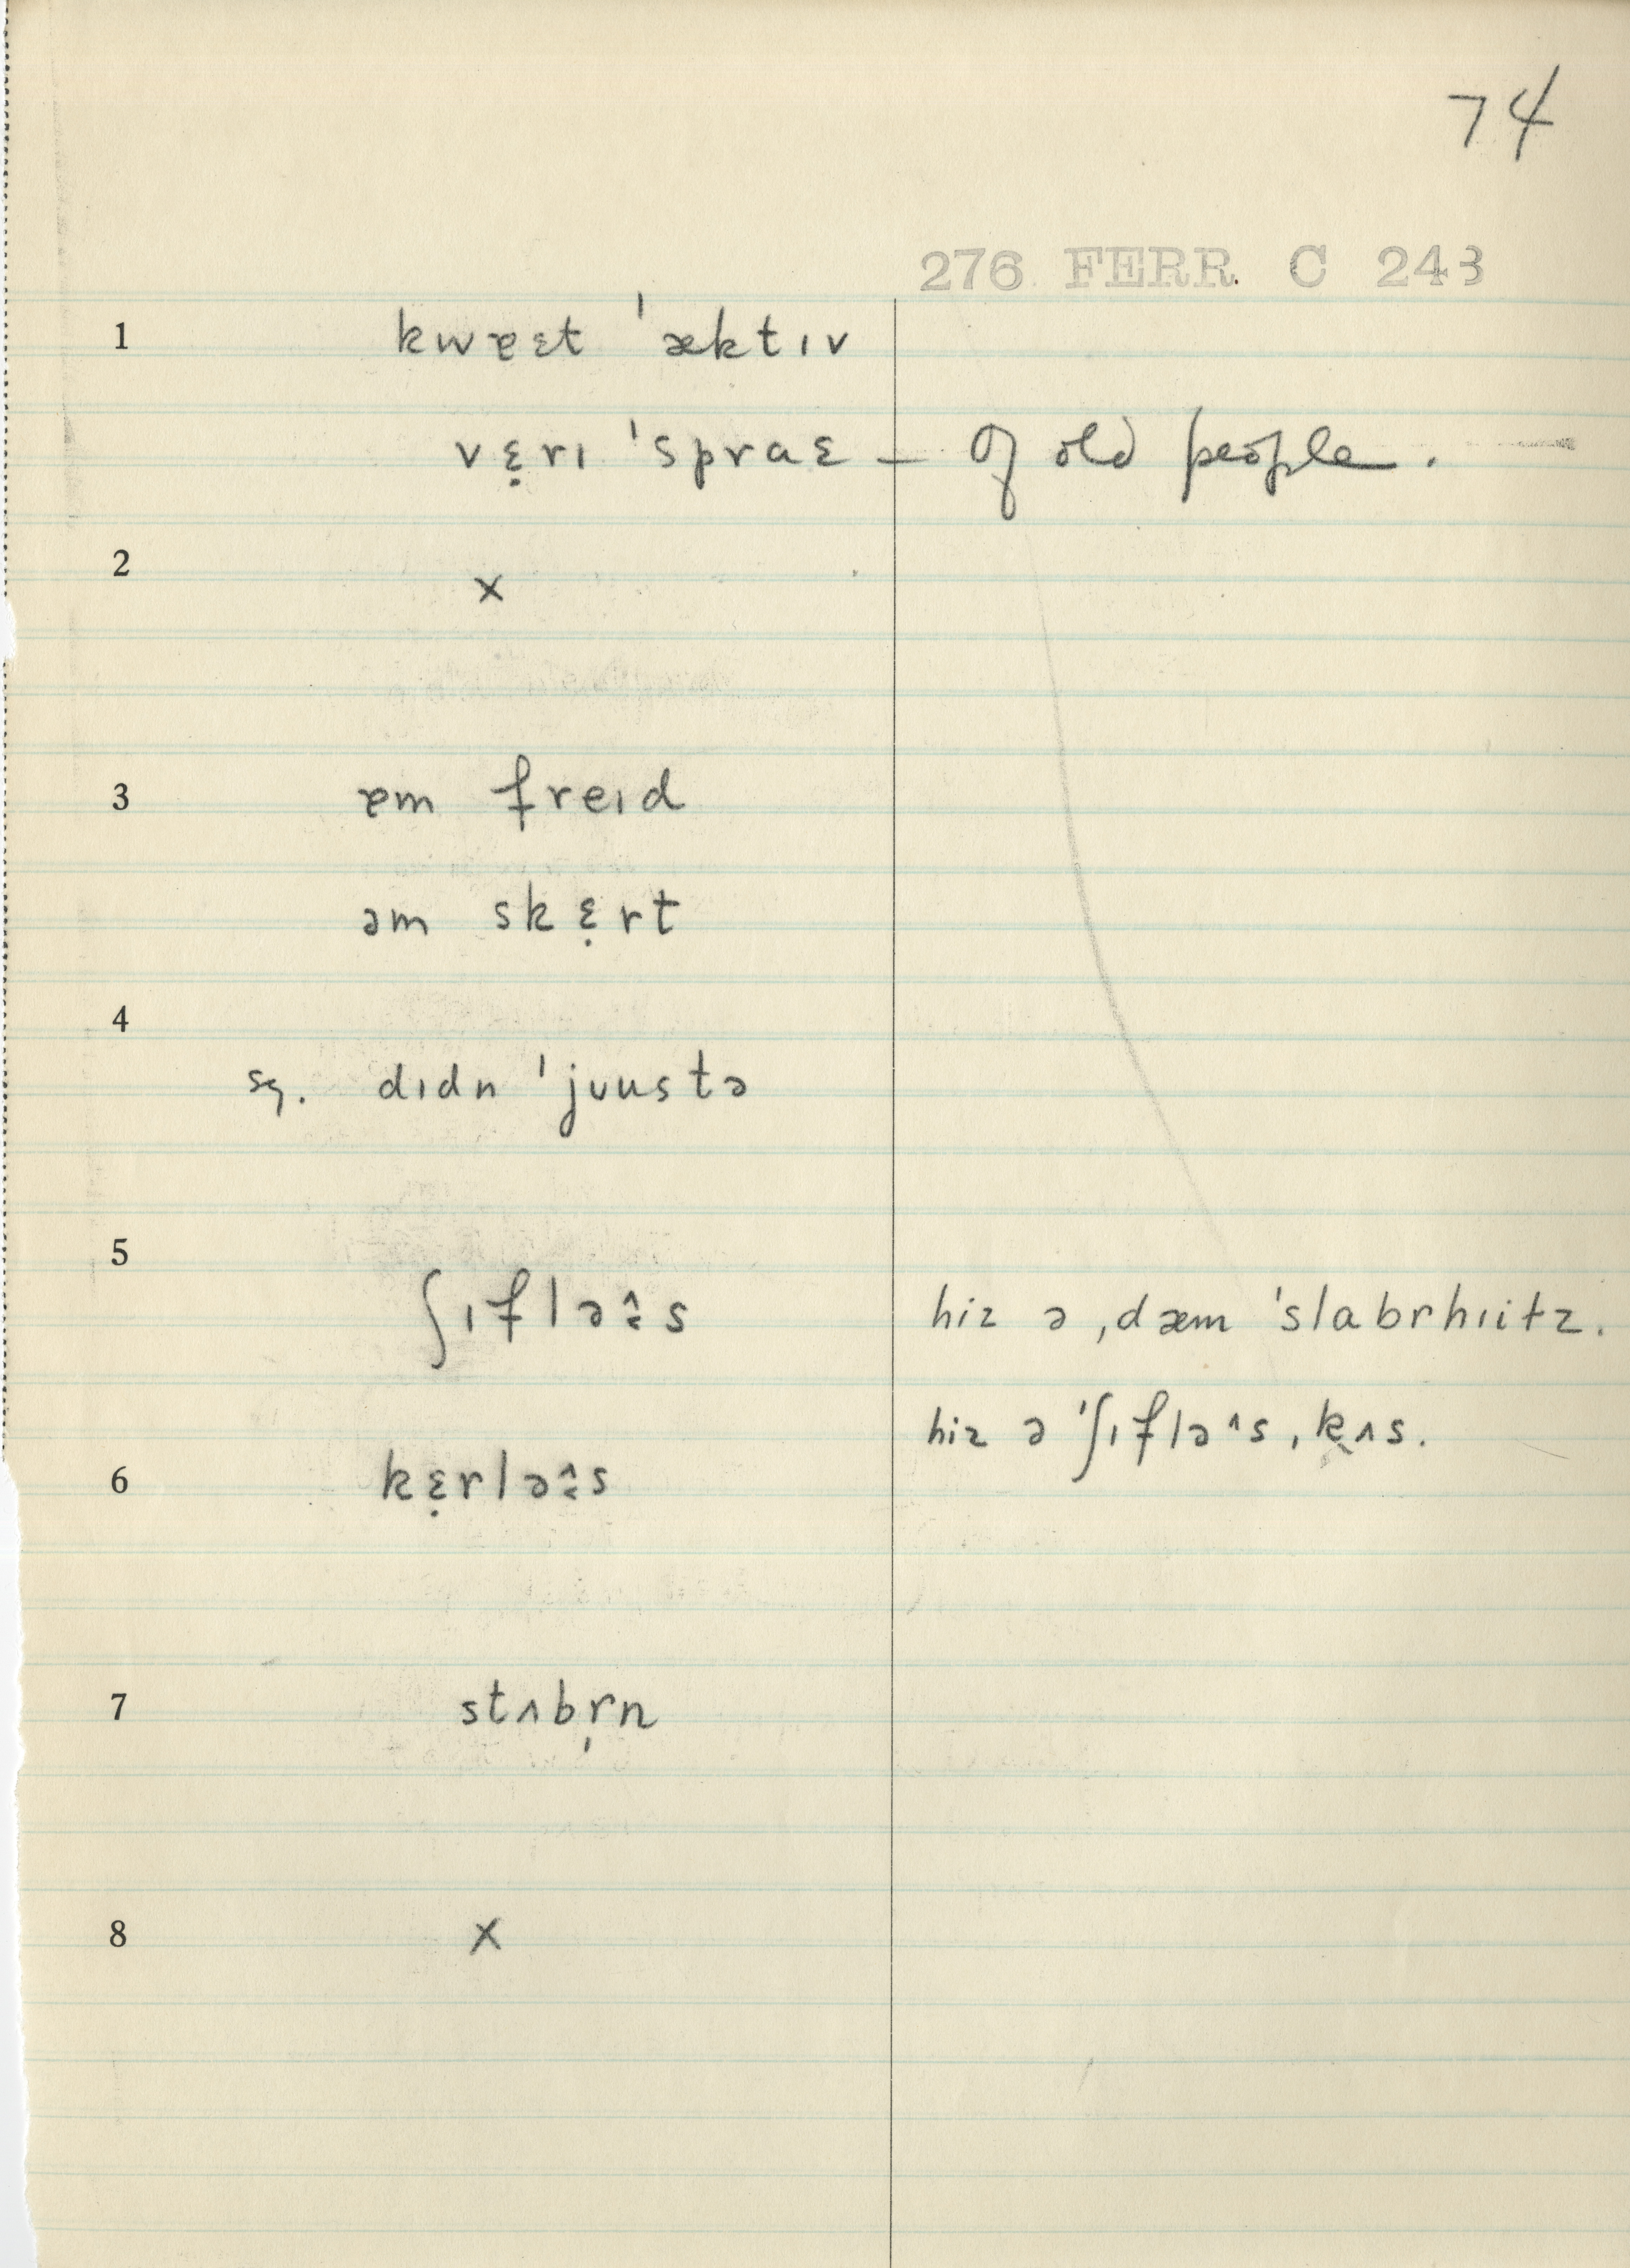 74
276 FERR. C 243
1 kwɐɛt 'æktɪv
vɛ̣rɪ 'spraɛ – of old people.
2 x
3 ɐm freɪd
əm skɛ̣rt
4
sg. dɪdn 'jʊustə
5
ʃɪflə᷈s hiz ə ˌdæm 'slabrhɪitz.
hiz ə 'ʃɪflə^s ˌkʌs.
6 kɛ̣rlə᷈s
7 stʌbr̩n
8 x